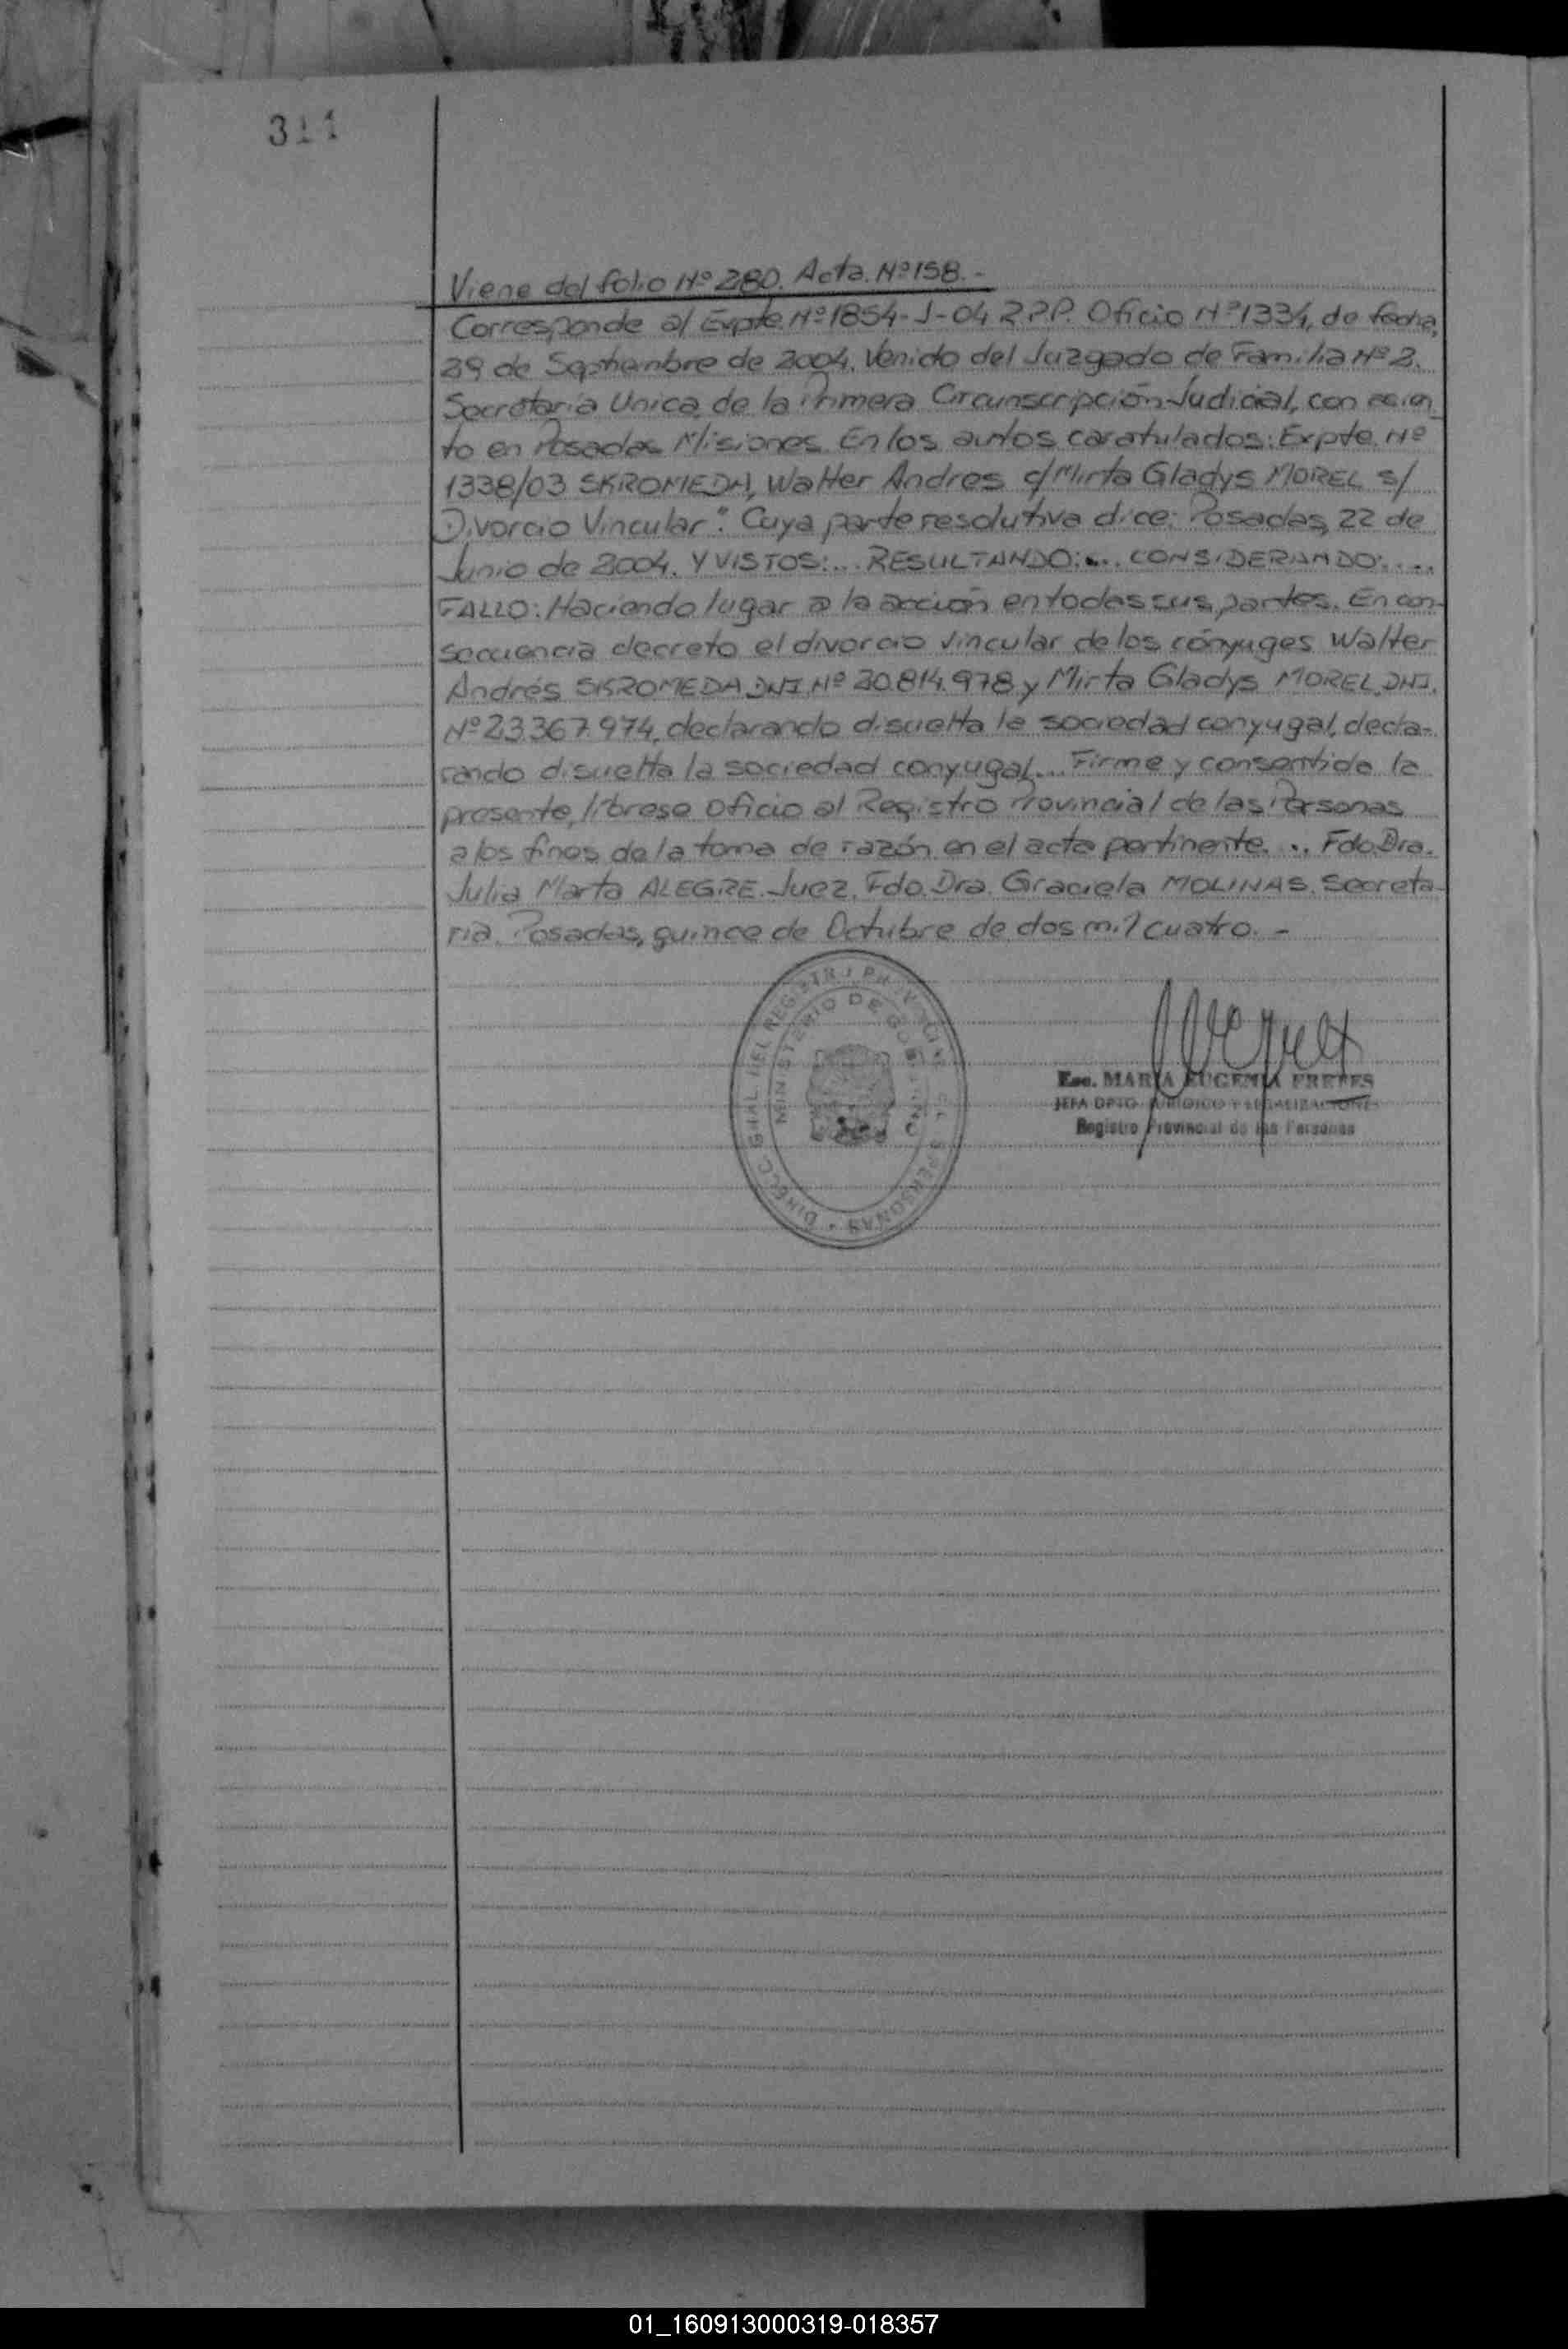 311
Viene del folio Nº 280. Acta. Nº 158.-
Corresponde al Expte. Nº 1854-J-04 R.P.P. Oficio Nº 1334, de fecha,
29 de Septiembre de 2004. Venido del Juzgado de Familia Nº 2.
Secretaria Unica, de la Primera Circunscripción Judicial, con asien
to en Posadas Misiones. En los autos caratulados: Expte. Nº
1338/03 SKROMEDA, Walter Andres c/ Mirta Gladys MOREL s/
Divorcio Vincular". Cuya parte resolutiva dice: Posadas, 22 de
Junio de 2004. Y VISTOS:... RESULTANDO:... CONSIDERANDO:....
FALLO: Haciendo lugar a la acción en todas sus partes. En con-
secuencia decreto el divorcio vincular de los cónyuges Walter
Andrés SKROMEDA DNI. Nº 20.814.978 y Mirta Gladys MOREL, DNI.
Nº 23.367.974, declarando disuelta la sociedad conyugal, decla-
rando disuelta la sociedad conyugal... Firme y consentida la
presente, líbrese Oficio al Registro Provincial de las Personas
a los fines de la toma de razón en el acta pertinente... Fdo. Dra.
Julia Marta ALEGRE. Juez. Fdo. Dra. Graciela MOLINAS. Secreta-
ria. Posadas, quince de Octubre de dos mil cuatro.-
DIRECC. GRAL. DEL REGISTRO PROVINCIAL DE LAS PERSONAS
MINISTERIO DE GOBIERNO
Esc. MARIA EUGENIA FRETES
JEFA DPTO. JURIDICO Y LEGALIZACIONES
Registro Provincial de las Personas
01_160913000319-018357